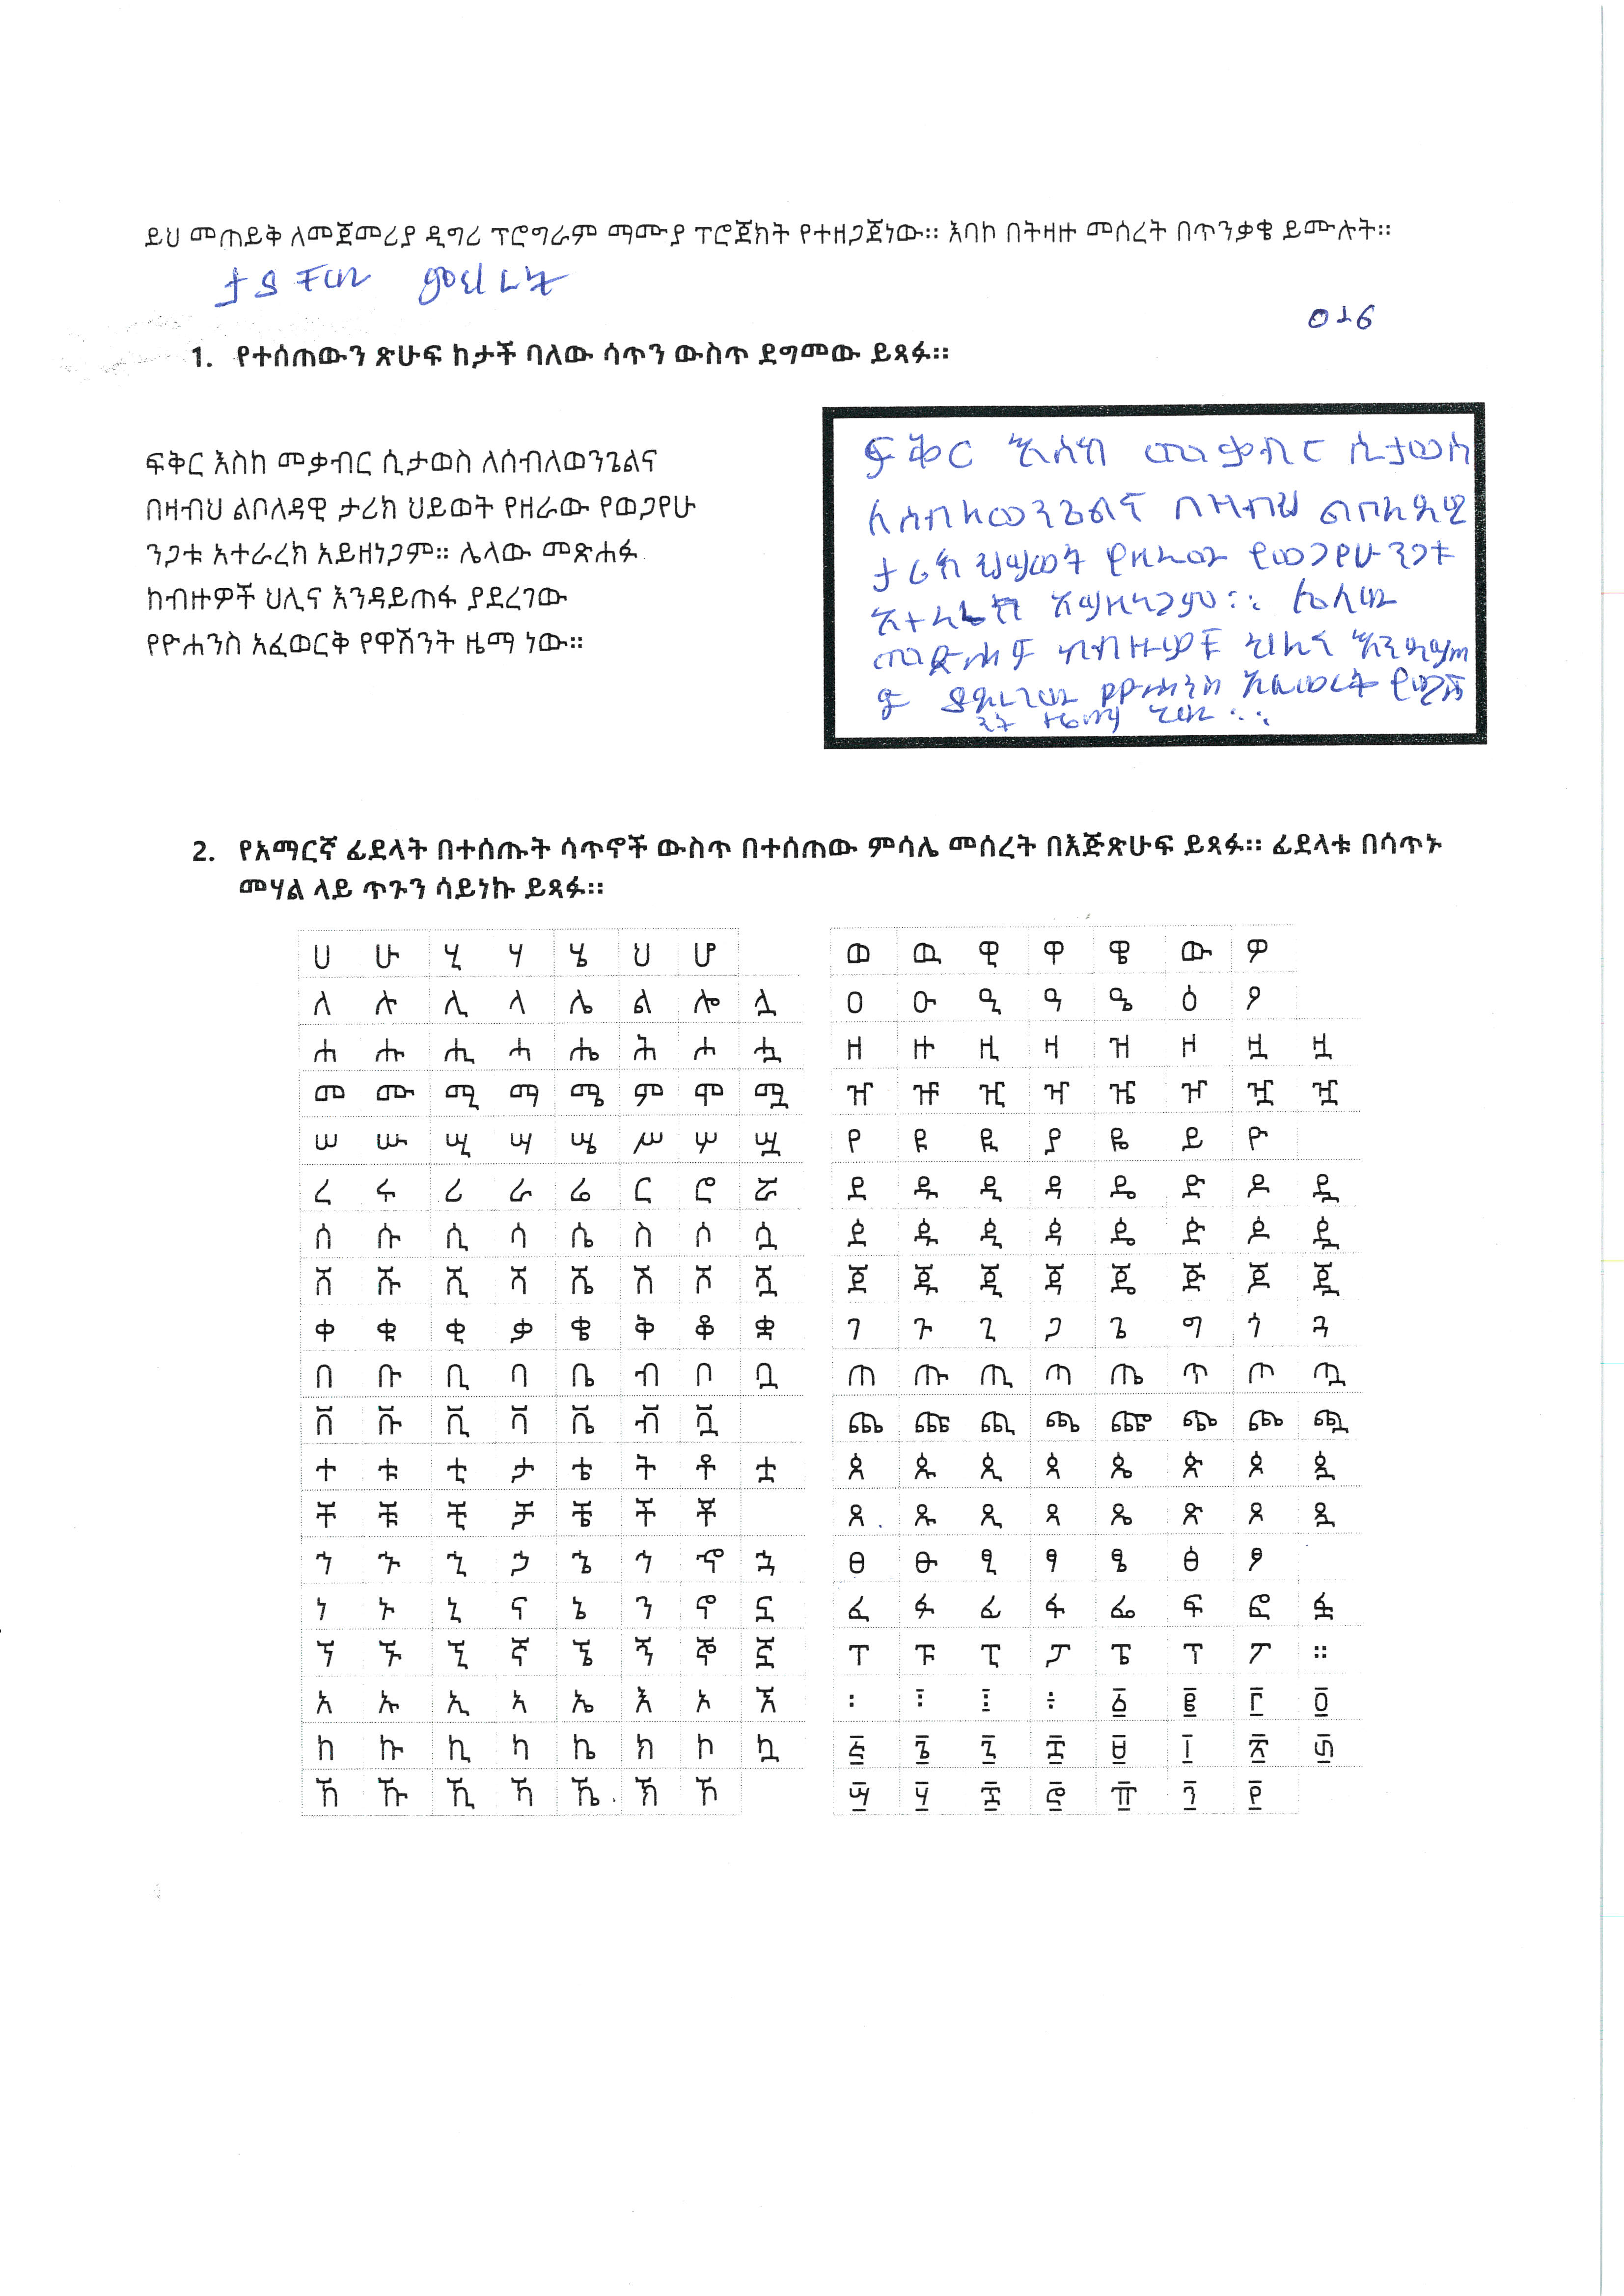 ይህ መጠይቅ ለመጀመሪያ ዲግሪ ፕሮግራም ማሙያ ፕሮጀክት የተዘጋጀነው። እባኮ በትዛዙ መሰረት በጥንቃቄ ይሙሉት።
ታያቸው ምህረት
016
1. የተሰጠውን ጽሁፍ ከታች ባለው ሳጥን ውስጥ ደግመው ይጻፉ።
ፍቅር እስከ መቃብር ሲታወስ ለሰብለወንጌልና
በዛብህ ልቦለዳዊ ታሪክ ህይወት የዘራው የወጋየሁ
ንጋቱ አተራረክ አይዘነጋም። ሌላው መጽሐፉ
ከብዙዎች ህሊና እንዳይጠፋ ያደረገው
የዮሐንስ አፈወርቅ የዋሽንት ዜማ ነው።
ፍቅር እስከ መቃብር ሲታወስ
ለሰብለወንጌልና በዛብህ ልቦለዳዊ
ታሪክ ህይወት የዘራው የወጋየሁ ንጋቱ
አተራረክ አይዘነጋም። ሌላው
መጽሐፉ ከብዙዎች ህሊና እንዳይጠ
ፋ ያደረገው የዮሐንስ አፈወርቅ የዋሽ
ንት ዜማ ነው።
2. የአማርኛ ፊደላት በተሰጡት ሳጥኖች ውስጥ በተሰጠው ምሳሌ መሰረት በእጅጽሁፍ ይጻፉ። ፊደላቱ በሳጥኑ
መሃል ላይ ጥጉን ሳይነኩ ይጻፉ።
ሀ ሁ ሂ ሃ ሄ ህ ሆ
ለ ሉ ሊ ላ ሌ ል ሎ ሏ
ሐ ሑ ሒ ሓ ሔ ሕ ሖ ሗ
መ ሙ ሚ ማ ሜ ም ሞ ሟ
ሠ ሡ ሢ ሣ ሤ ሥ ሦ ሧ
ረ ሩ ሪ ራ ሬ ር ሮ ሯ
ሰ ሱ ሲ ሳ ሴ ስ ሶ ሷ
ሸ ሹ ሺ ሻ ሼ ሽ ሾ ሿ
ቀ ቁ ቂ ቃ ቄ ቅ ቆ ቋ
በ ቡ ቢ ባ ቤ ብ ቦ ቧ
ቨ ቩ ቪ ቫ ቬ ቭ ቯ
ተ ቱ ቲ ታ ቴ ት ቶ ቷ
ቸ ቹ ቺ ቻ ቼ ች ቾ
ኀ ኁ ኂ ኃ ኄ ኅ ኆ ኋ
ነ ኑ ኒ ና ኔ ን ኖ ኗ
ኘ ኙ ኚ ኛ ኜ ኝ ኞ ኟ
አ ኡ ኢ ኣ ኤ እ ኦ ኧ
ከ ኩ ኪ ካ ኬ ክ ኮ ኳ
ኸ ኹ ኺ ኻ ኼ ኽ ኾ
ወ ዉ ዊ ዋ ዌ ው ዎ
ዐ ዑ ዒ ዓ ዔ ዕ ዖ
ዘ ዙ ዚ ዛ ዝ ዞ ዟ ዟ
ዠ ዡ ዢ ዣ ዤ ዦ ዧ ዧ
የ ዩ ዪ ያ ዬ ይ ዮ
ደ ዱ ዲ ዳ ዴ ድ ዶ ዷ
ዸ ዹ ዺ ዻ ዼ ዽ ዾ ዿ
ጀ ጁ ጂ ጃ ጄ ጅ ጆ ጇ
ገ ጉ ጊ ጋ ጌ ግ ጎ ጓ
ጠ ጡ ጢ ጣ ጤ ጥ ጦ ጧ
ጨ ጩ ጪ ጫ ጬ ጭ ጮ ጯ
ጰ ጱ ጲ ጳ ጴ ጵ ጶ ጷ
ጸ ጹ ጺ ጻ ጼ ጽ ጾ ጿ
ፀ ፁ ፂ ፃ ፄ ፅ ፆ
ፈ ፉ ፊ ፋ ፌ ፍ ፎ ፏ
ፐ ፑ ፒ ፓ ፔ ፕ ፖ ።
፡ ፣ ፤ ፥ ፩ ፪ ፫ ፬
፭ ፮ ፯ ፰ ፱ ፲ ፳ ፴
፵ ፶ ፷ ፸ ፹ ፺ ፻